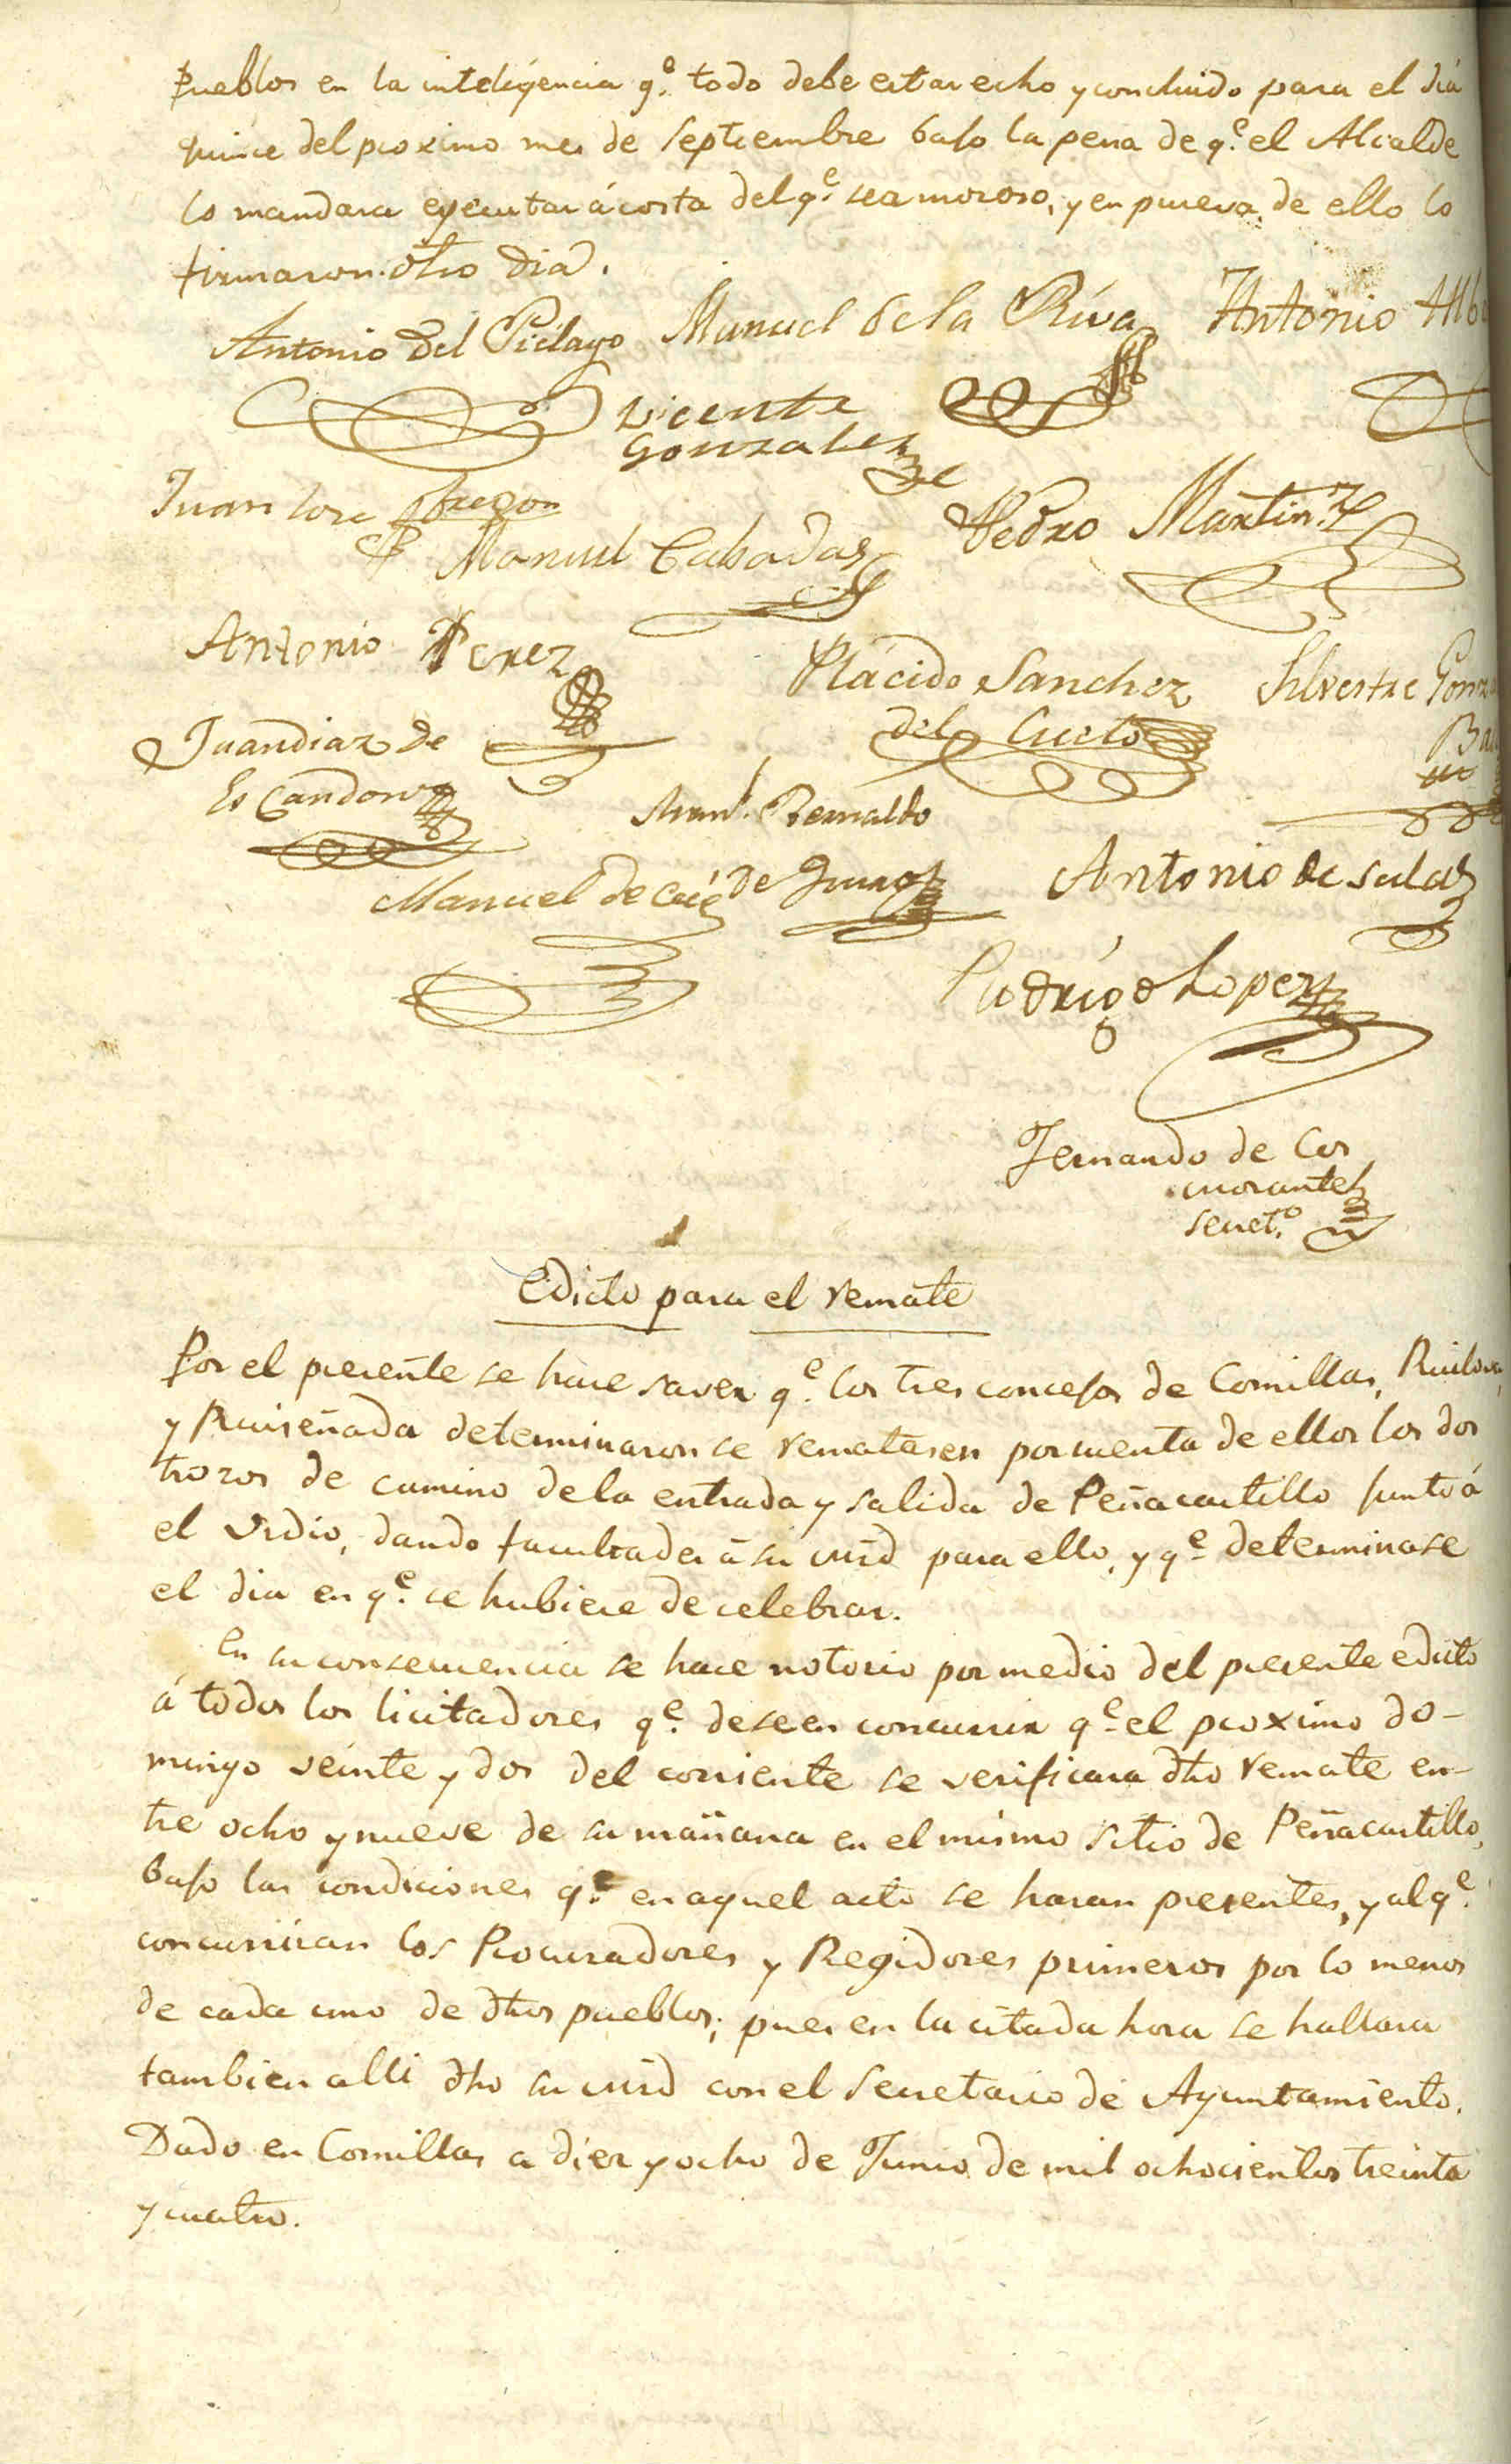 Pueblos en la inteligencia q.e todo debe estar echo y concluido para el dia
quince del proximo mes de Septiembre bajo la pena de q.e el Alcalde
lo mandara ejecutar á costa del q.e sea moroso, y en prueva de ello lo
firmaron dho dia.
Antonio del Piélago Manuel de la Riva Antonio
Vicente
Gonzalez
Juan Jose Obregon
Manuel Cabadas Pedro Martinz
Antonio Perez
Plácido Sanchez Silvestre Gonz
del Cueto
Juan diaz de
Escandon
Man.l Bernaldo
de Quiros
Manuel de Antonio de Salas
Rodrigo Lopez
Fernando de Cos
morante
Secret.o
Edicto para el remate
Por el presente se hace saver q.e los tres concejos de Comillas, Ruilova,
y Ruiseñada determinaron se rematasen por cuenta de ellos los dos
trozos de camino de la entrada y salida de Peñacastillo junto á
el Vidio, dando facultades á su mrd para ello, y q.e determinase
el dia en q.e se hubiese de celebrar.
En su consecuencia se hace notorio por medio del presente edicto
á todos los licitadores q.e deseen concurrir q.e el proximo do-
mingo veinte y dos del corriente se verificara dho remate en-
tre ocho y nueve de su mañana en el mismo sitio de Peñacastillo,
bajo las condiciones q.e en aquel acto se haran presentes, y al q.e
concurriran los Procuradores y Regidores primeros por lo menos
de cada uno de dhos pueblos; pues en la citada hora se hallara
tambien alli dho su mrd con el Secretario de Ayuntamiento.
Dado en Comillas a diez y ocho de Junio de mil ochocientos treinta
y cuatro.